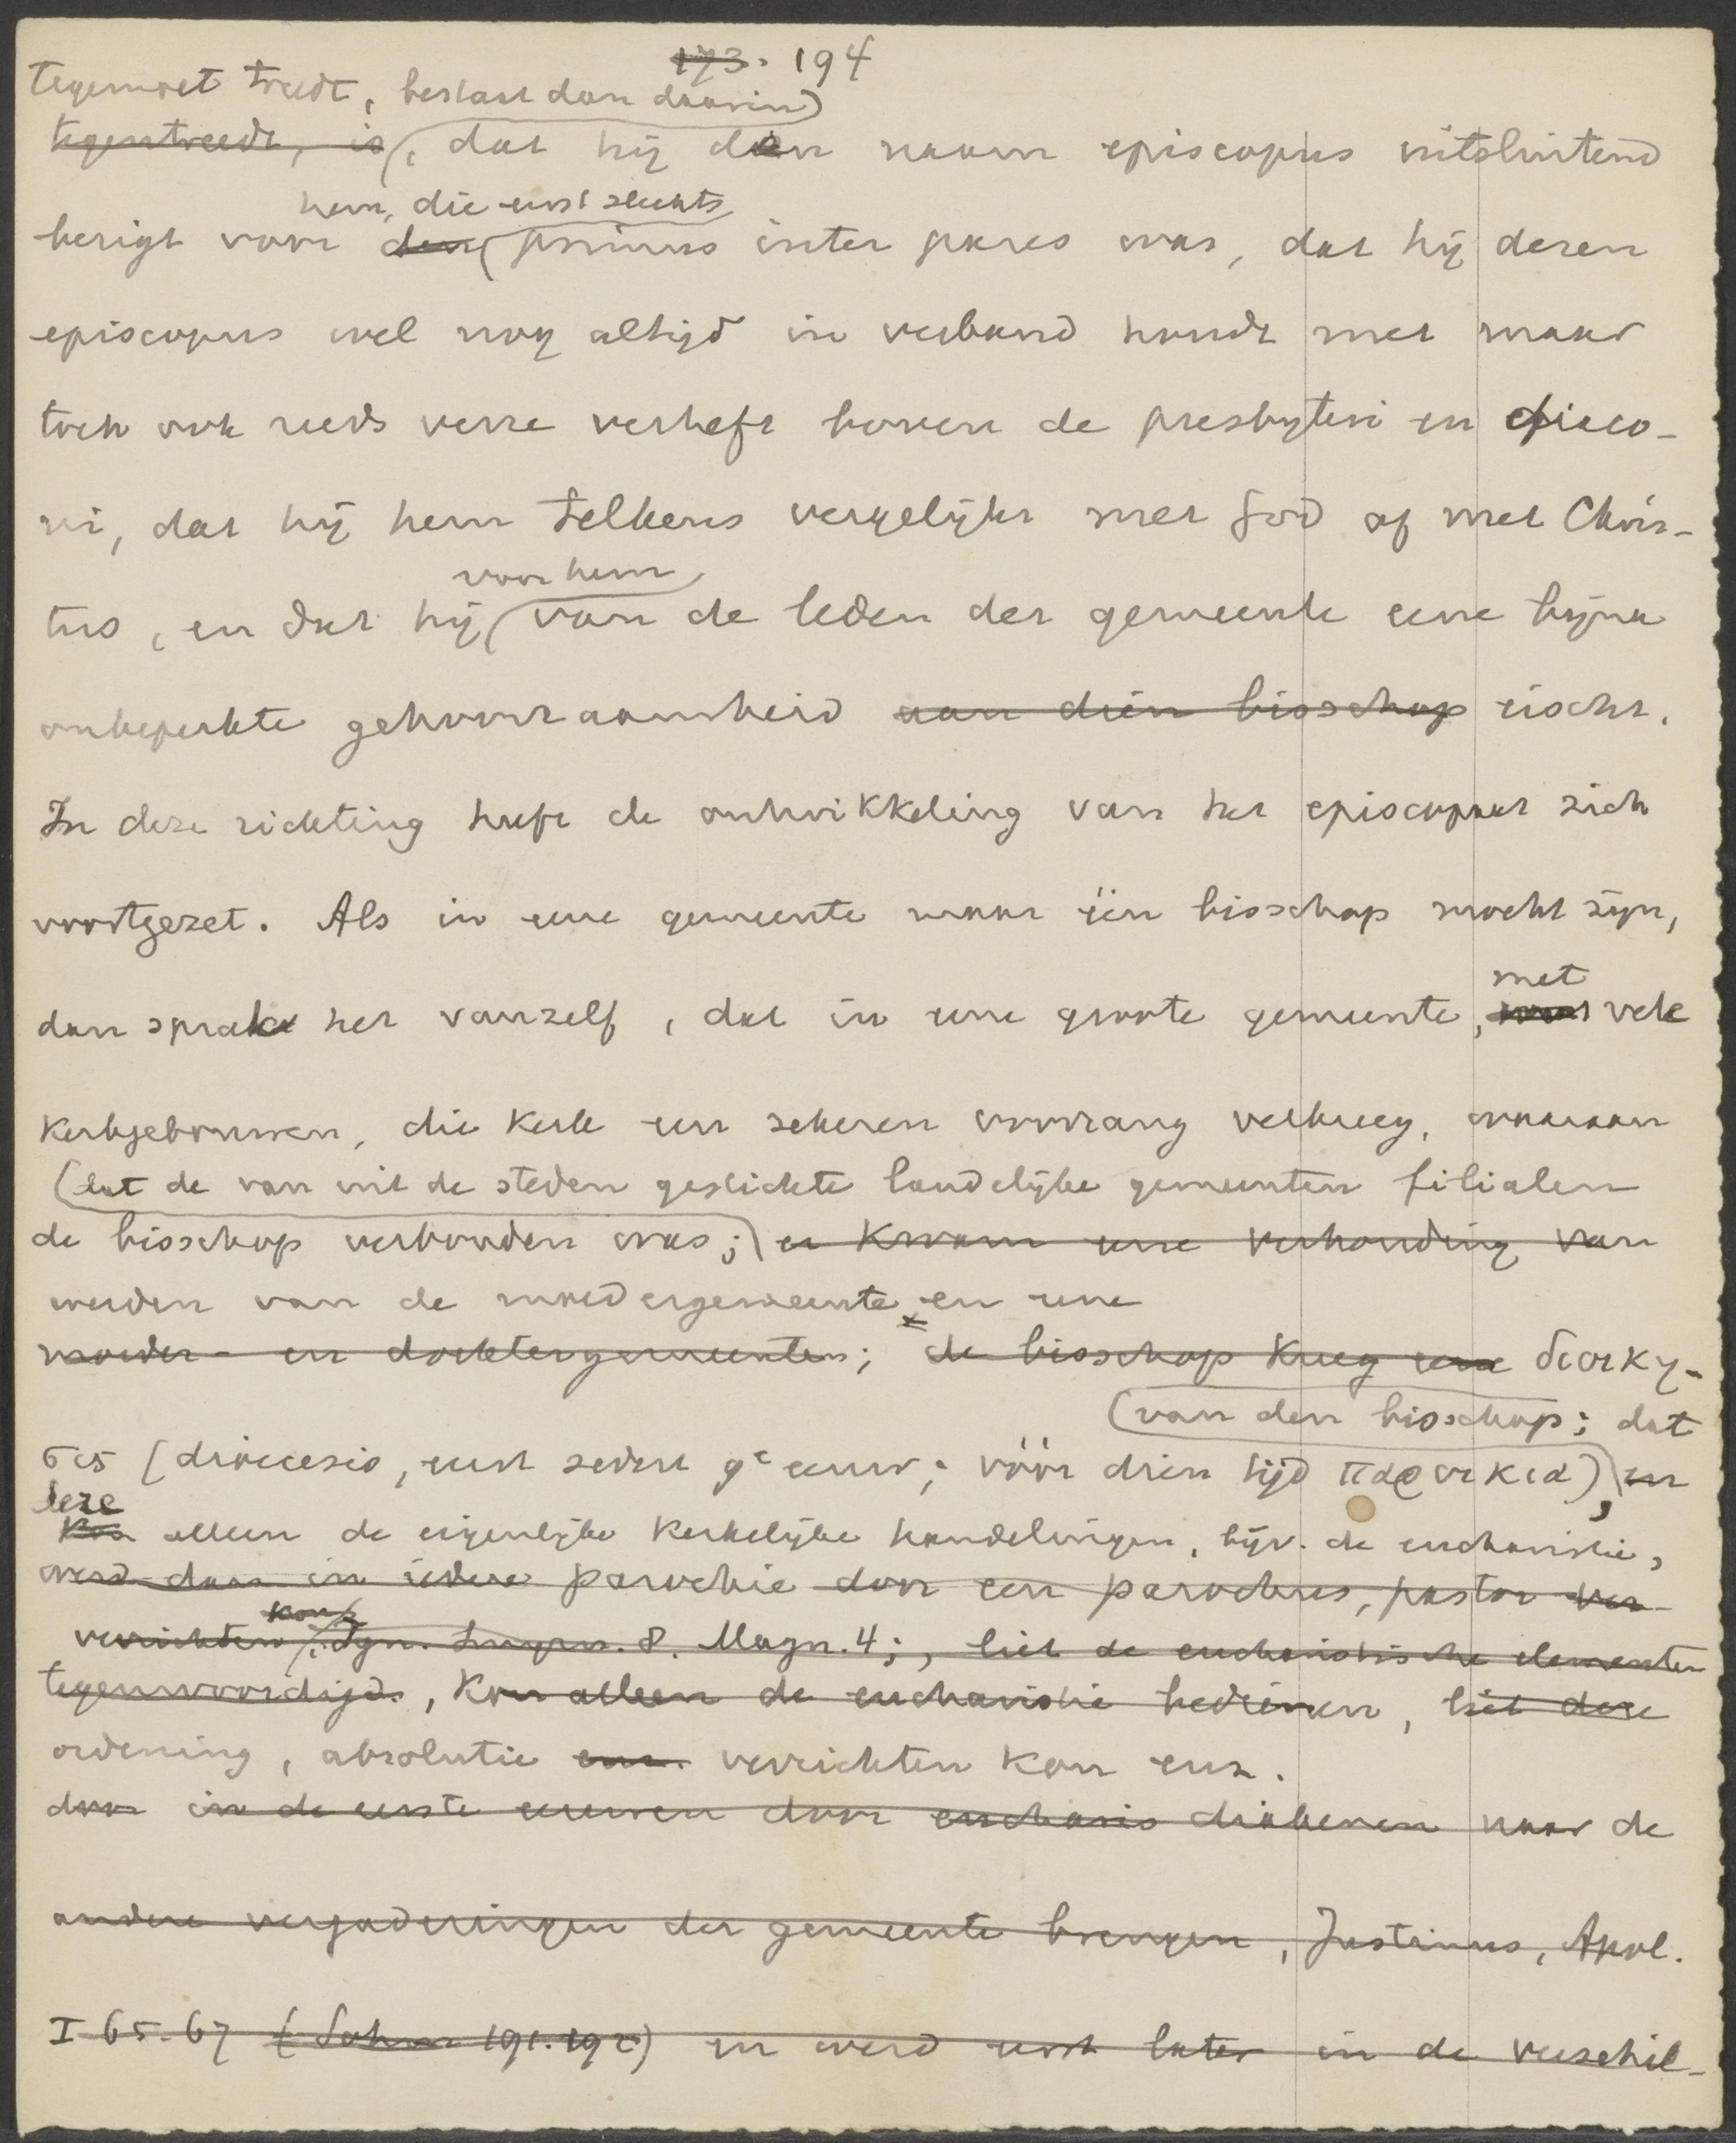 173. 194
tegemoet treedt, bestaat dan daarin
tegentreedt, is, dat hij den naam episcopus uitsluitend
hem, die eerst slechts
bezigt voor den primus inter pares was, dat hij dezen
episcopus wel nog altijd in verband houdt met maar
toch ook reeds verre verheft boven de presbyteri en diaco-
ni, dat hij hem telkens vergelijkt met God of met Chris-
voor hem
tus, en dat hij van de leden der gemeente eene bijna
onbeperkte gehoorzaamheid aan dien bisschop eischt.
In deze richting heeft de ontwikkeling van het episcopaat zich
voortgezet. Als in eene gemeente maar één bisschop mocht zijn,
met
dan sprak het vanzelf, dat in eene groote gemeente, vele
kerkgebouwen, die kerk een zekeren voorrang verkreeg, waaraan
dat de van uit de steden gestichte landelijke gemeenten filialen
de bisschop verbonden was; er kwam eene verhouding van
werden van de moedergemeente en eene
moeder- en dochtergemeenten; de bisschop kreeg eene διοικη-
van den bisschop; dat
σις (dioecesis, eerst sedert 9e eeuw; vóór dien tijd παροικια) en
deze
kon alleen de eigenlijke kerkelijke handelingen, bijv. de eucharistie,
werd daar in iedere parochie door een parochus, pastor ver-
kon
verrichten, Ign. Smyrn. 8. Magn. 4;, liet de eucharistische elementen
tegenwoordigd., kon alleen de eucharistie bedienen, liet deze
ordening, absolutie enz. verrichten kon enz.
door in de eerste eeuwen door eucharis diakenen naar de
andere vergaderingen der gemeente brengen, Justinus, Apol.
I 65. 67 (Sohm 191. 192) en werd eerst later in de verschil-